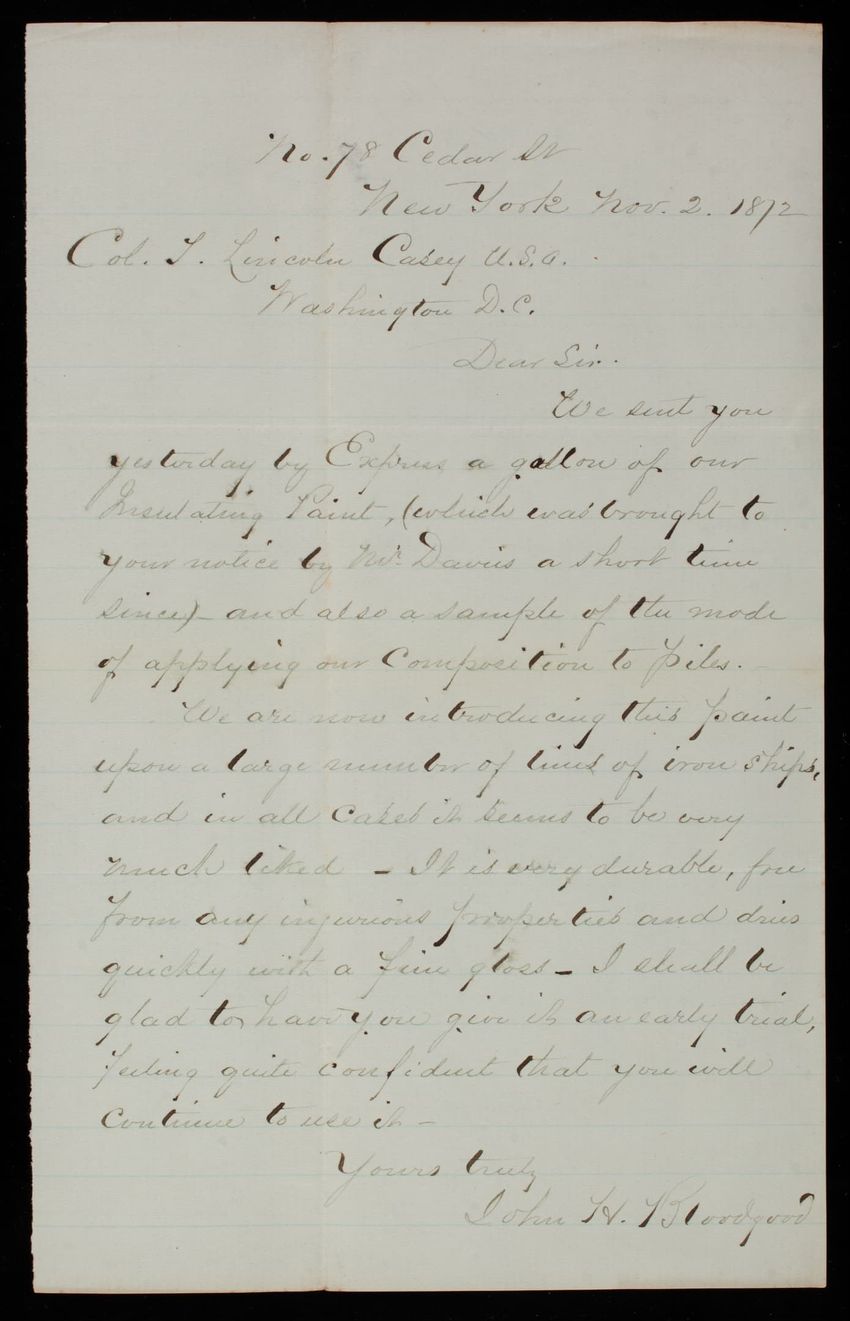 No. 78 Cedar St
New York Nov. 2. 1872
Col. T. Lincoln Casey U.S.A.
Washington D.C.
Dear Sir.
We sent you
yesterday by Express a gallon of our
Insulating Paint, (which was brought to
your notice by Mr. Davis a short time
since) - and also a sample of the mode
of applying our Composition to piles. -
We are now introducing this paint
upon a large number of lines of iron ships,
and in all cases it seems to be very
much liked - It is very durable, free
from any injurious properties and dries
quickly with a fine gloss - I shall be
glad to have you give it an early trial,
feeling quite confident that you will
continue to use it -
Yours truly
John H. Bloodgood